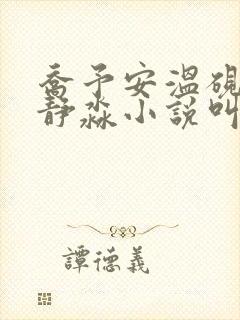 喬予安溫硯
靜淼小說叫
譚德義